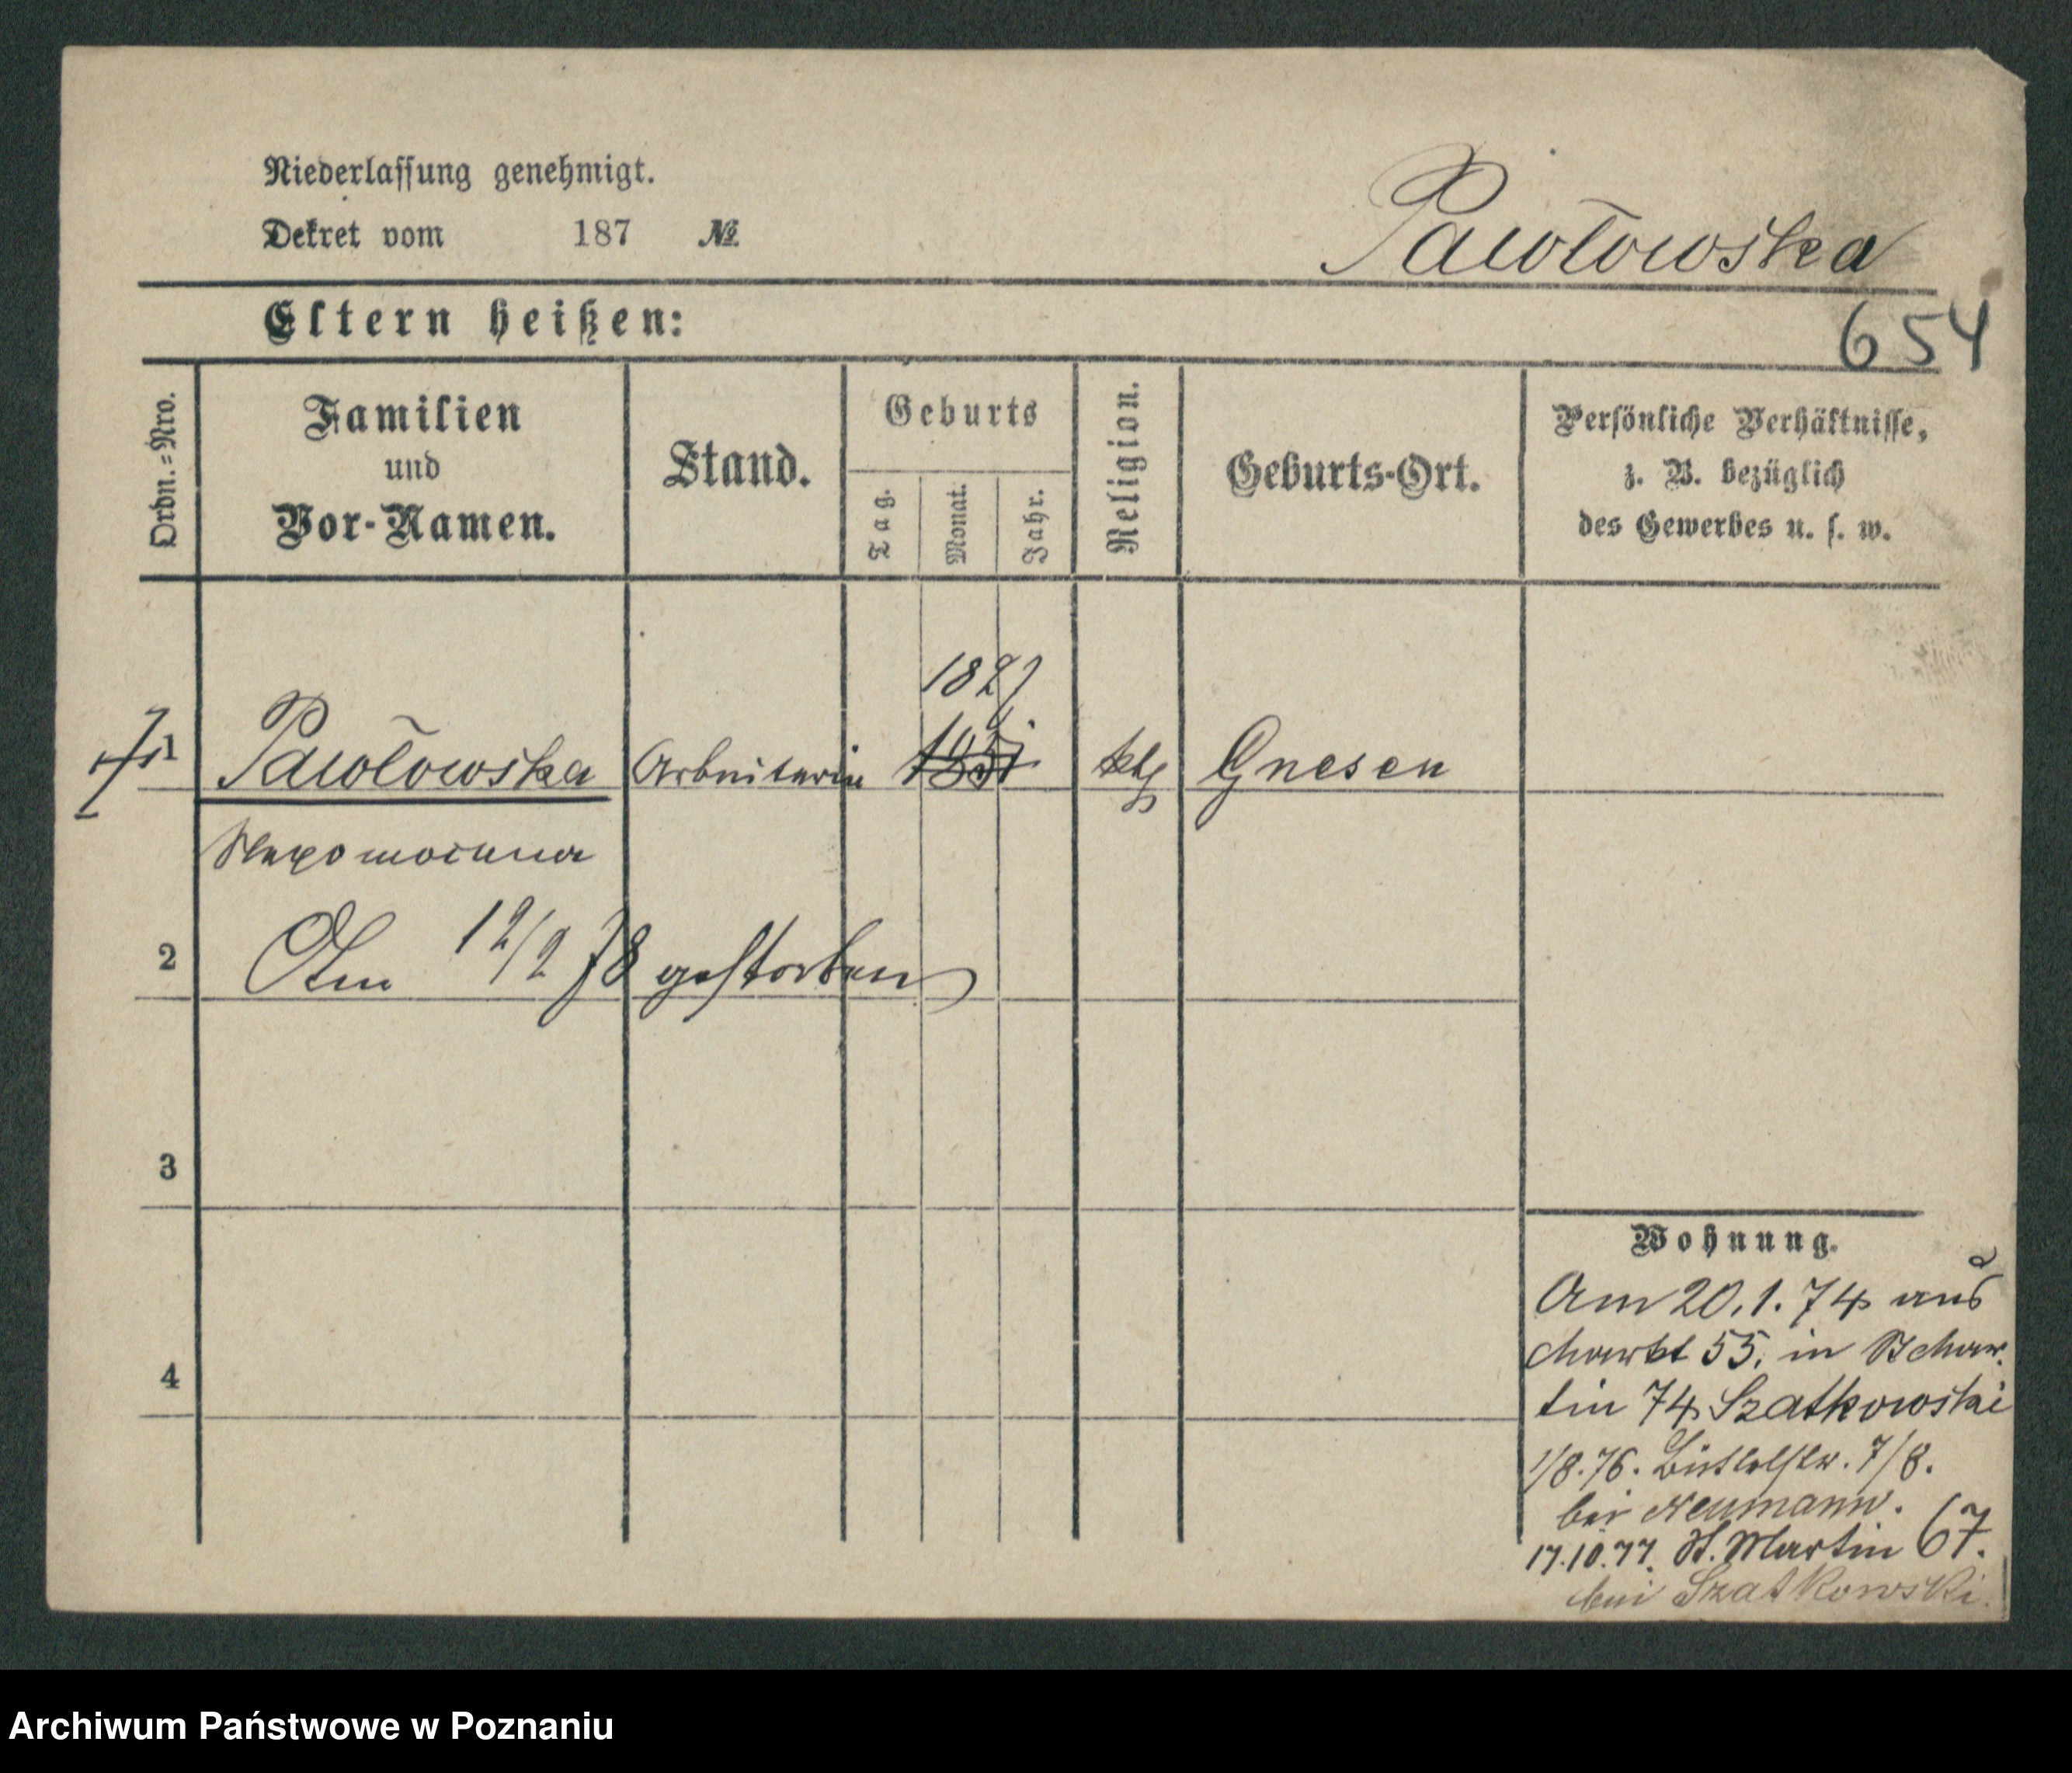 Niederlassung genehmigt.
Dekret vom 187 №
Pawłowska
Eltern heißen:
654
Ordn.=Nro.
Familien
und
Vor-Namen.
Stand.
Geburts
Tag.
Monat.
Jahr.
Religion.
Geburts-Ort.
Persönliche Verhältnisse,
z. B. bezüglich
des Gewerbes u. s. w.
1827
1 Pawłowska Arbeiterin ktlg Gnesen
Nepomocuna
2 Am 12/2 78 gestorben
3
Wohnung.
Am 20.1.74 aus
Markt 55. in St Mar
4
tin 74 Szatkowski
1/8.76. Büttelstr. 7/8.
bei Neumann.
17.10.77. St. Martin 67.
bei Szatkowski.
Archiwum Państwowe w Poznaniu